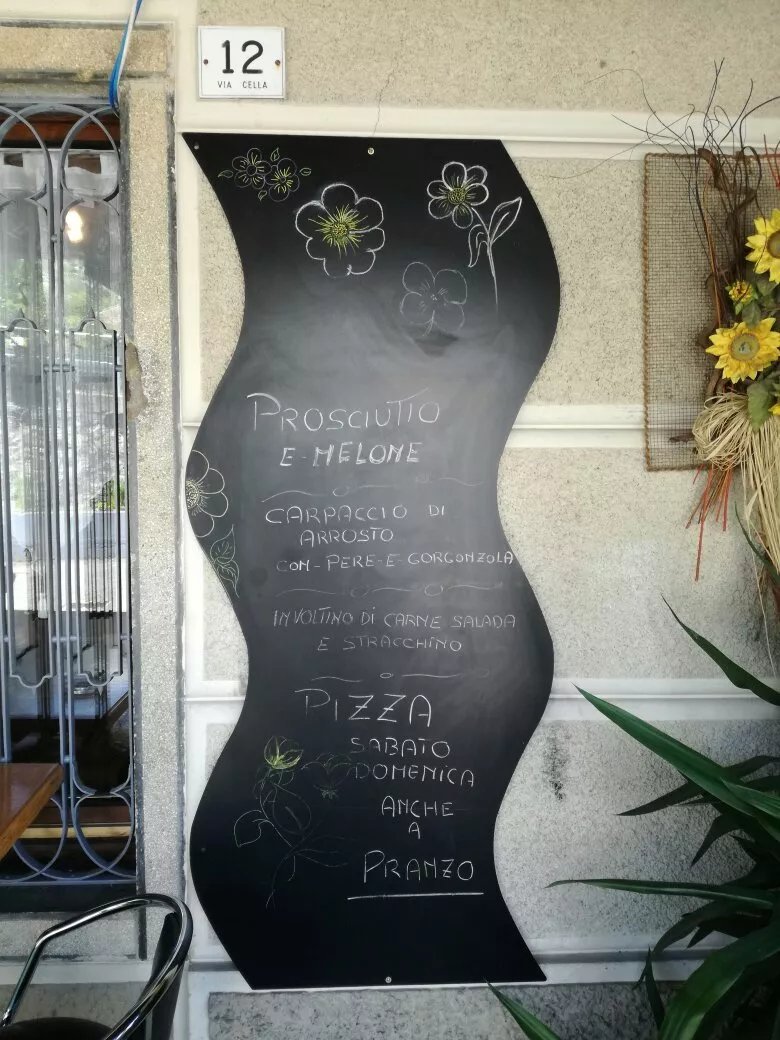 12
VIA CELLA
PROSCIUTTO
E-MELONE
CARPACCIO DI
ARROSTO
CON-PERE-E-GORGONZOLA
INVOLTINO DI CARNE SALADA
E STRACCHINO
PIZZA
SABATO
DOMENICA
ANCHE
A
PRANZO